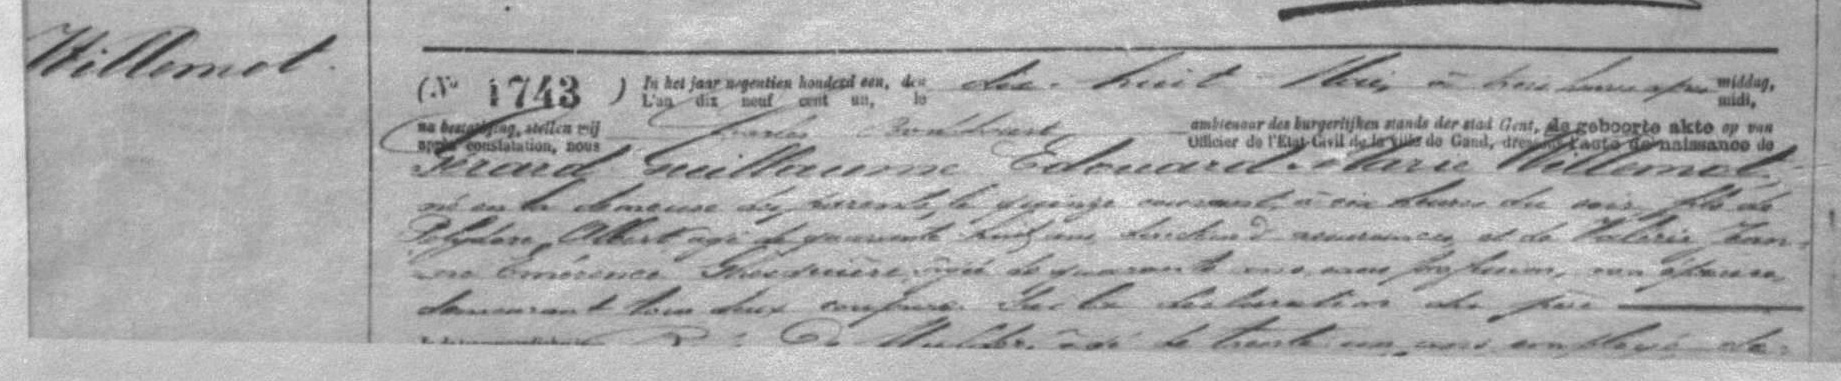 Willemot.
(No 1743) In het jaar negentien honderd een, den
L'an dix neuf cent un, le dix-huit Mai, à trois heures après middag,
midi,
na bestatiging, stellen wij
après constatation, nous Charles ambtenaar des burgerlijken stands der stad Gent, de geboorte akte op van
Officier de l'Etat-Civil de la ville de Gand, dressons l'acte de naissance de
Gérard Guillaume Edouard Marie Willemot,
né en la demeure des parents, le quinze courant, à six heures du soir, fils de
Polydore Albert âgé de quarante huit ans, assurances, et de Valérie Jean-
ne Emérence Ghesquière, âgée de quarante ans, sans profession, son épouse,
demeurant tous deux Sur la déclaration du père
De Mulder, âgé de trente un ans employé, de-